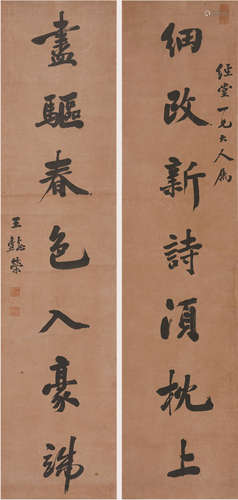 細改新詩須枕上
經堂一兄大人屬
盡驅春色入豪端
王懿榮